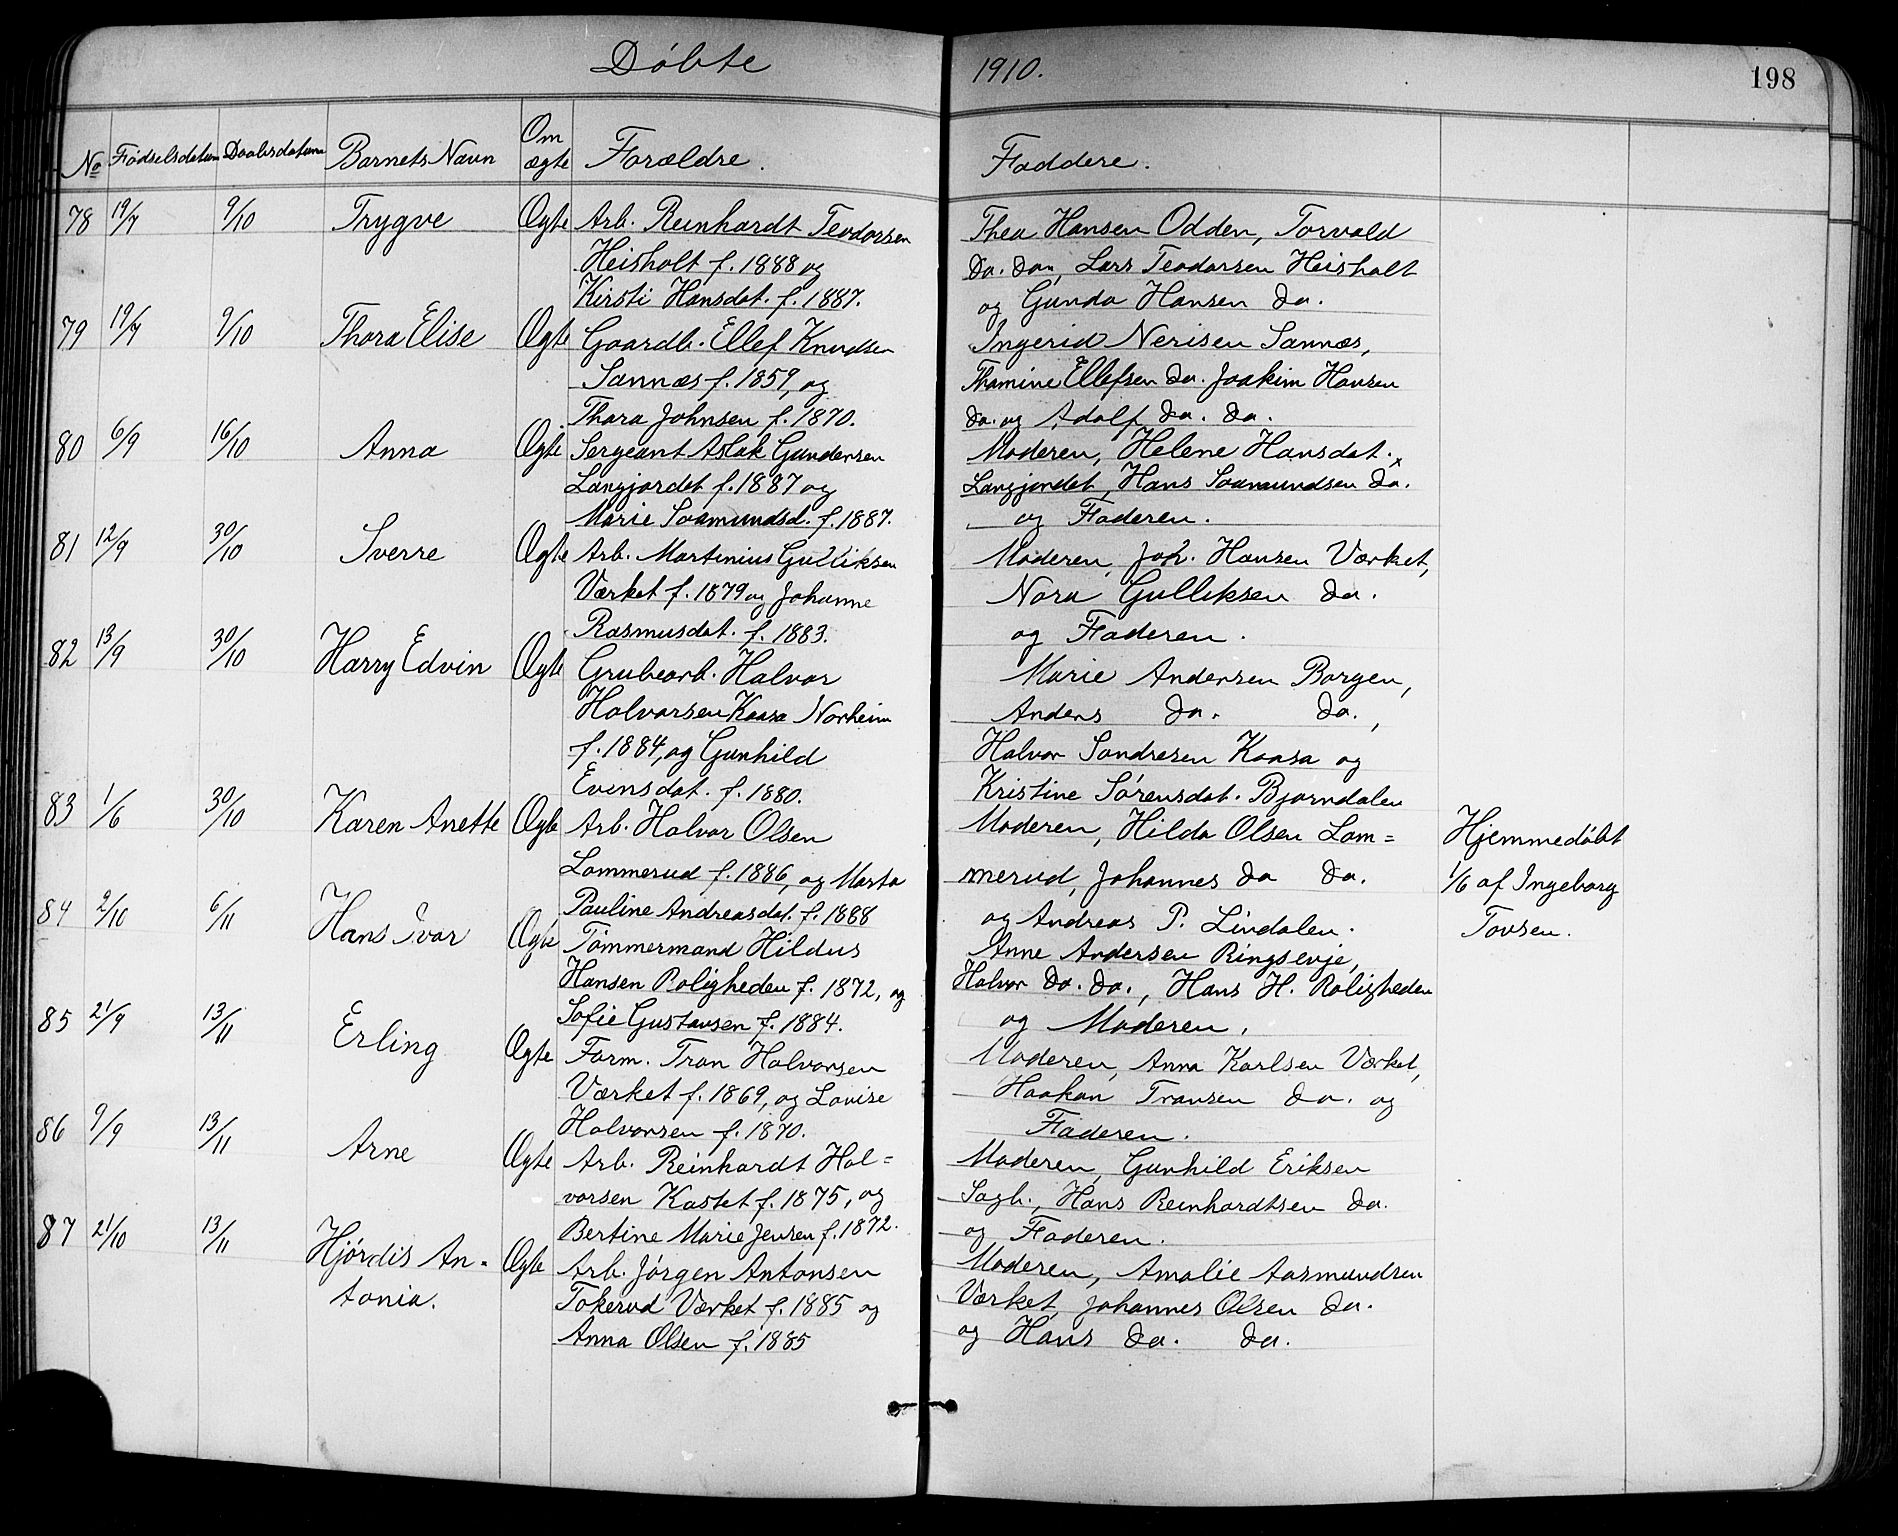 Døbte 1910. 198
No Fødselsdatum Daabsdatum Barnets Navn Om ægte Forældre. Faddere.
78 19/7 9/10 Trygve Ægte Arb. Reinhardt Teodorsen
Heisholt f. 1888 og
Kirsti Hansdat. f. 1887.
Thea Hansen Odden, Torvald
do. do., Lars Teodorsen Heisholt
og Gunda Hansen do.
79 19/7 9/10 Thora Elise Ægte Gaardb. Ellef Knudsen
Sannæs f. 1859, og
Thora Johnsen f. 1870.
Ingerid Nerisen Sannæs,
Thomine Ellefsen do. Joakim Hansen
do. og Adolf do. do.
80 6/9 16/10 Anna Ægte Sergeant Aslak Gundersen
Langjordet f. 1887 og
Marie Saamundsd. f. 1887.
Moderen, Helene Hansdat.
Langjordet, Hans Saamundsen do.
og Faderen.
81 12/9 30/10 Sverre Ægte Arb. Martinius Gulliksen
Værket f. 1879 og Johanne
Rasmusdat. f. 1883.
Moderen, Joh. Hansen Værket,
Nora Gulliksen do.
og Faderen.
82 13/9 30/10 Harry Edvin Ægte Grubearb. Halvor
Halvorsen Kaasa Norheim
f. 1884, og Gunhild
Evensdat. f. 1880.
Marie Andersen Borgen,
Anders do. do.,
Halvor Sondresen Kaasa og
Kristine Sørensdat. Bjorndalen
83 1/6 30/10 Karen Anette Ægte Arb. Halvor Olsen
Lommerud f. 1886, og Marta
Pauline Andreasdat. f. 1888
Moderen, Hilda Olsen Lom=
merud, Johannes do do.
og Andreas P. Lindalen.
Hjemmedøbt
1/6 af Ingeborg
Tovsen.
84 2/10 6/11 Hans Ivar Ægte Tømmermand Hildus
Hansen Roligheden f. 1872, og
Sofie Gustavsen f. 1884.
Anne Andersen Ringsevje,
Halvor do. do., Hans H. Roligheden
og Moderen.
85 21/9 13/11 Erling Ægte Form. Tron Halvorsen
Værket f. 1869, og Lovise
Halvorsen f. 1870.
Moderen, Anna Karlsen Værket,
Haakon Tronsen do. og
Faderen.
86 9/9 13/11 Arne Ægte Arb. Reinhardt Hal=
vorsen Kastet f. 1875, og
Bertine Marie Jensen f. 1872.
Moderen, Gunhild Eriksen
Sagb., Hans Reinhardtsen do.
og Faderen.
87 21/10 13/11 Hjørdis An-
tonia. Ægte Arb. Jørgen Antonsen
Tokerud Værket f. 1885 og
Anna Olsen f. 1885
Moderen, Amalie Aasmundsen
Værket, Johannes Olsen do.
og Hans do. do.